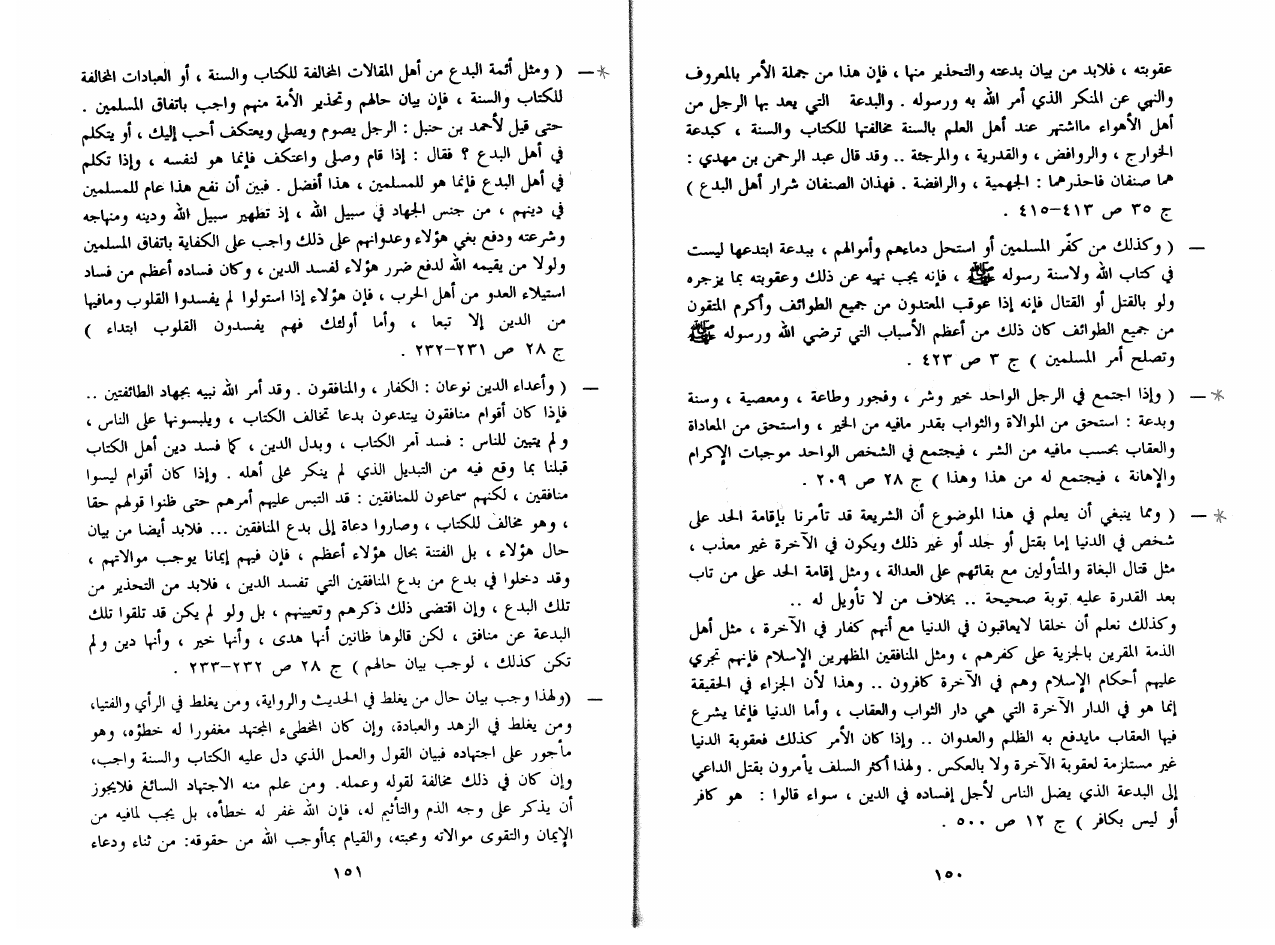 عقوبته ، فلابد من بيان بدعته والتحذير منها ، فإن هذا من جملة الأمر بالمعروف
والنهي عن المنكر الذي أمر الله به ورسوله . والبدعة التي يعد بها الرجل من
أهل الأهواء مااشتهر عند أهل العلم بالسنة مخالفتها للكتاب والسنة ، كبدعة
الخوارج ، والروافض ، والقدرية ، والمرجئة .. وقد قال عبد الرحمن بن مهدي :
هما صنفان فاحذرهما : الجهمية ، والرافضة . فهذان الصنفان شرار أهل البدع )
ج ٣٥ ص ٤١٣–٤١٥ .
— ( وكذلك من كفّر المسلمين أو استحل دماءهم وأموالهم ، ببدعة ابتدعها ليست
في كتاب الله ولاسنة رسوله ﷺ ، فإنه يجب نهيه عن ذلك وعقوبته بما يزجره
ولو بالقتل أو القتال فإنه إذا عوقب المعتدون من جميع الطوائف وأكرم المتقون
من جميع الطوائف كان ذلك من أعظم الأسباب التي ترضي الله ورسوله ﷺ
وتصلح أمر المسلمين ) ج ٣ ص ٤٢٣ .
* — ( وإذا اجتمع في الرجل الواحد خير وشر ، وفجور وطاعة ، ومعصية ، وسنة
وبدعة : استحق من الموالاة والثواب بقدر مافيه من الخير ، واستحق من المعاداة
والعقاب بحسب مافيه من الشر ، فيجتمع في الشخص الواحد موجبات الإكرام
والإهانة ، فيجتمع له من هذا وهذا ) ج ٢٨ ص ٢٠٩ .
* — ( ومما ينبغي أن يعلم في هذا الموضوع أن الشريعة قد تأمرنا بإقامة الحد على
شخص في الدنيا إما بقتل أو جلد أو غير ذلك ويكون في الآخرة غير معذب ،
مثل قتال البغاة والمتأولين مع بقائهم على العدالة ، ومثل إقامة الحد على من تاب
بعد القدرة عليه توبة صحيحة .. بخلاف من لا تأويل له ..
وكذلك نعلم أن خلقا لايعاقبون في الدنيا مع أنهم كفار في الآخرة ، مثل أهل
الذمة المقرين بالجزية على كفرهم ، ومثل المنافقين المظهرين الإسلام فإنهم تجري
عليهم أحكام الإسلام وهم في الآخرة كافرون .. وهذا لأن الجزاء في الحقيقة
إنما هو في الدار الآخرة التي هي دار الثواب والعقاب ، وأما الدنيا فإنما يشرع
فيها العقاب مايدفع به الظلم والعدوان .. وإذا كان الأمر كذلك فعقوبة الدنيا
غير مستلزمة لعقوبة الآخرة ولا بالعكس . ولهذا أكثر السلف يأمرون بقتل الداعي
إلى البدعة الذي يضل الناس لأجل إفساده في الدين ، سواء قالوا : هو كافر
أو ليس بكافر ) ج ١٢ ص ٥٠٠ .
١٥٠
* — ( ومثل أئمة البدع من أهل المقالات المخالفة للكتاب والسنة ، أو العبادات المخالفة
للكتاب والسنة ، فإن بيان حالهم وتحذير الأمة منهم واجب باتفاق المسلمين .
حتى قيل لأحمد بن حنبل : الرجل يصوم ويصلي ويعتكف أحب إليك ، أو يتكلم
في أهل البدع ؟ فقال : إذا قام وصلى واعتكف فإنما هو لنفسه ، وإذا تكلم
في أهل البدع فإنما هو للمسلمين ، هذا أفضل . فبين أن نفع هذا عام للمسلمين
في دينهم ، من جنس الجهاد في سبيل الله ، إذ تطهير سبيل الله ودينه ومنهاجه
وشرعته ودفع بغي هؤلاء وعدوانهم على ذلك واجب على الكفاية باتفاق المسلمين
ولولا من يقيمه الله لدفع ضرر هؤلاء لفسد الدين ، وكان فساده أعظم من فساد
استيلاء العدو من أهل الحرب ، فإن هؤلاء إذا استولوا لم يفسدوا القلوب ومافيها
من الدين إلا تبعا ، وأما أولئك فهم يفسدون القلوب ابتداء )
ج ٢٨ ص ٢٣١–٢٣٢ .
— ( وأعداء الدين نوعان : الكفار ، والمنافقون . وقد أمر الله نبيه بجهاد الطائفتين ..
فإذا كان أقوام منافقون يبتدعون بدعا تخالف الكتاب ، ويلبسونها على الناس ،
ولم يتبين للناس : فسد أمر الكتاب ، وبدل الدين ، كما فسد دين أهل الكتاب
قبلنا بما وقع فيه من التبديل الذي لم ينكر على أهله . وإذا كان أقوام ليسوا
منافقين ، لكنهم سماعون للمنافقين : قد التبس عليهم أمرهم حتى ظنوا قولهم حقا
، وهو مخالف للكتاب ، وصاروا دعاة إلى بدع المنافقين ... فلابد أيضا من بيان
حال هؤلاء ، بل الفتنة بحال هؤلاء أعظم ، فإن فيهم إيمانا يوجب موالاتهم ،
وقد دخلوا في بدع من بدع المنافقين التي تفسد الدين ، فلابد من التحذير من
تلك البدع ، وإن اقتضى ذلك ذكرهم وتعيينهم ، بل ولو لم يكن قد تلقوا تلك
البدعة عن منافق ، لكن قالوها ظانين أنها هدى ، وأنها خير ، وأنها دين ولم
تكن كذلك ، لوجب بيان حالهم ) ج ٢٨ ص ٢٣٢–٢٣٣ .
— (ولهذا وجب بيان حال من يغلط في الحديث والرواية، ومن يغلط في الرأي والفتيا،
ومن يغلط في الزهد والعبادة، وإن كان المخطىء المجتهد مغفورا له خطؤه، وهو
مأجور على اجتهاده فبيان القول والعمل الذي دل عليه الكتاب والسنة واجب،
وإن كان في ذلك مخالفة لقوله وعمله. ومن علم منه الاجتهاد السائغ فلايجوز
أن يذكر على وجه الذم والتأثيم له، فإن الله غفر له خطأه، بل يجب لمافيه من
الإيمان والتقوى موالاته ومحبته، والقيام بماأوجب الله من حقوقه: من ثناء ودعاء
١٥١